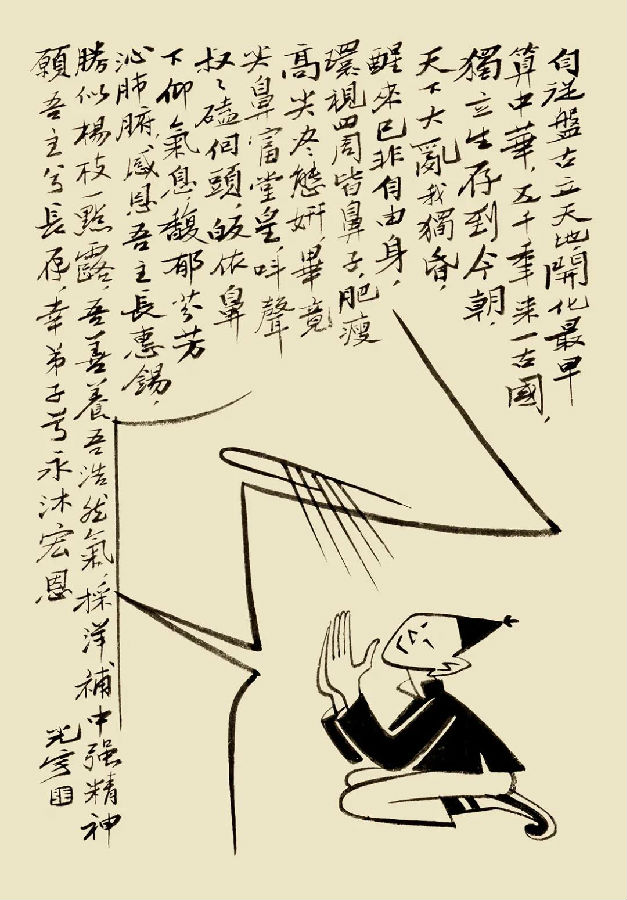 自從盤古立天地,開化最早
算中華,五千年来一古國,
獨立生存到今朝,
天下大亂我獨昏,
醒來已非自由身,
環視四周皆鼻子,肥瘦
高尖尽態妍,畢竟
尖鼻富堂皇,呌聲
叔々磕個頭,皈依鼻
下仰氣息馥郁芬芳
沁肺腑,感恩吾主長惠錫,
勝似楊枝一點露,吾善養吾浩然氣,採洋補中强精神
願吾主兮長存,幸弟子兮永沐宏恩
光宇